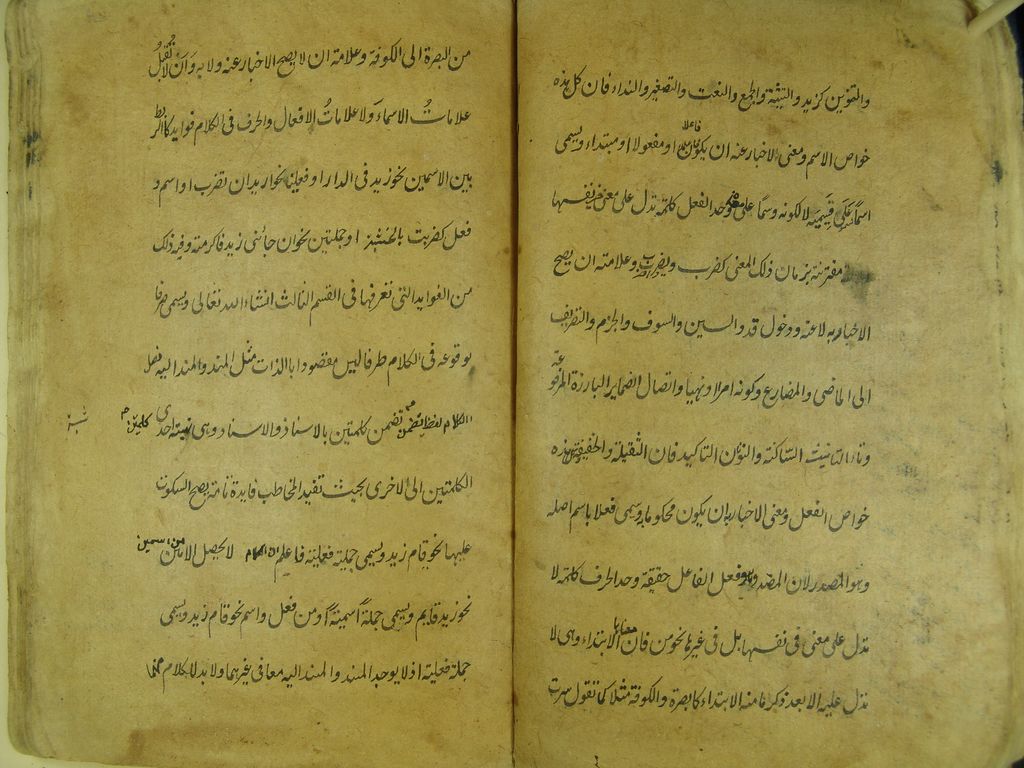 والتنوين كزيد والتثنية والجمع والنعت والتصغير والنداء فان كل هذه
خواص الاسم ومعنى الاخبار عنه ان يكون فاعلا او مفعولا او مبتداء ويسمى
اسما على قسيميه لا لكونه وسما على وحد الفعل كلمة تدل على معنى فى نفسها
مقترنة بزمان ذلك المعنى كضرب ويضرب وعلامته ان يصح
الاخبار به لا عنه ودخول قد والسين والسوف والجزم والتصريف
الى الماضى والمضارع وكونه امرا ونهيا واتصال الضماير البارزة المرفوعة
وتاء التانيث الساكنة والنون التاكيد فان الثقيلة والخفيفة هذه
خواص الفعل ومعنى الاخبار به ان يكون محكوما به ويسمى فعلا باسم اصله
وهو المصدر لان المصدر هو فعل الفاعل حقيقة وحد الحرف كلمة لا
تدل على معنى فى نفسها بل فى غيرها نحو من فان معناها الابتداء وهى لا
تدل عليه الا بعد ذكر ما منه الابتداء كالبصرة والكوفة مثلا كما تقول سرت
من البصرة الى الكوفة وعلامته ان لا يصح الاخبار عنه ولا به وان لا تقبل
علامات الاسماء ولا علامات الافعال والحرف فى الكلام فوايد كالربط
بين الاسمين نحو زيد فى الدار او فعلين نحو اريد ان تضرب او اسم و
فعل كضربت بالخشبة او جملتين نحو ان جائنى زيد فاكرمته وغير ذلك
من الفوايد التى تعرفها فى القسم الثالث انشاء الله تعالى ويسمى حرفا
لوقوعه فى الكلام طرفا ليس مقصودا بالذات مثل المسند والمسند اليه فصل
الكلام لفظ تضمن كلمتين بالاسناد والاسناد وهى نسبة احدى كلمتين
الكلمتين الى الاخرى بحيث تفيد المخاطب فايدة تامة يصح السكوت
عليها نحو قام زيد ويسمى جملة فعلية فاعلم ان الكلام لا يحصل الا من اسمين
نحو زيد قايم ويسمى جملة اسمية او من فعل واسم نحو قام زيد ويسمى
جملة فعلية اذ لا يوجد المسند والمسند اليه معا فى غيرهما ولا بد للكلام منهما